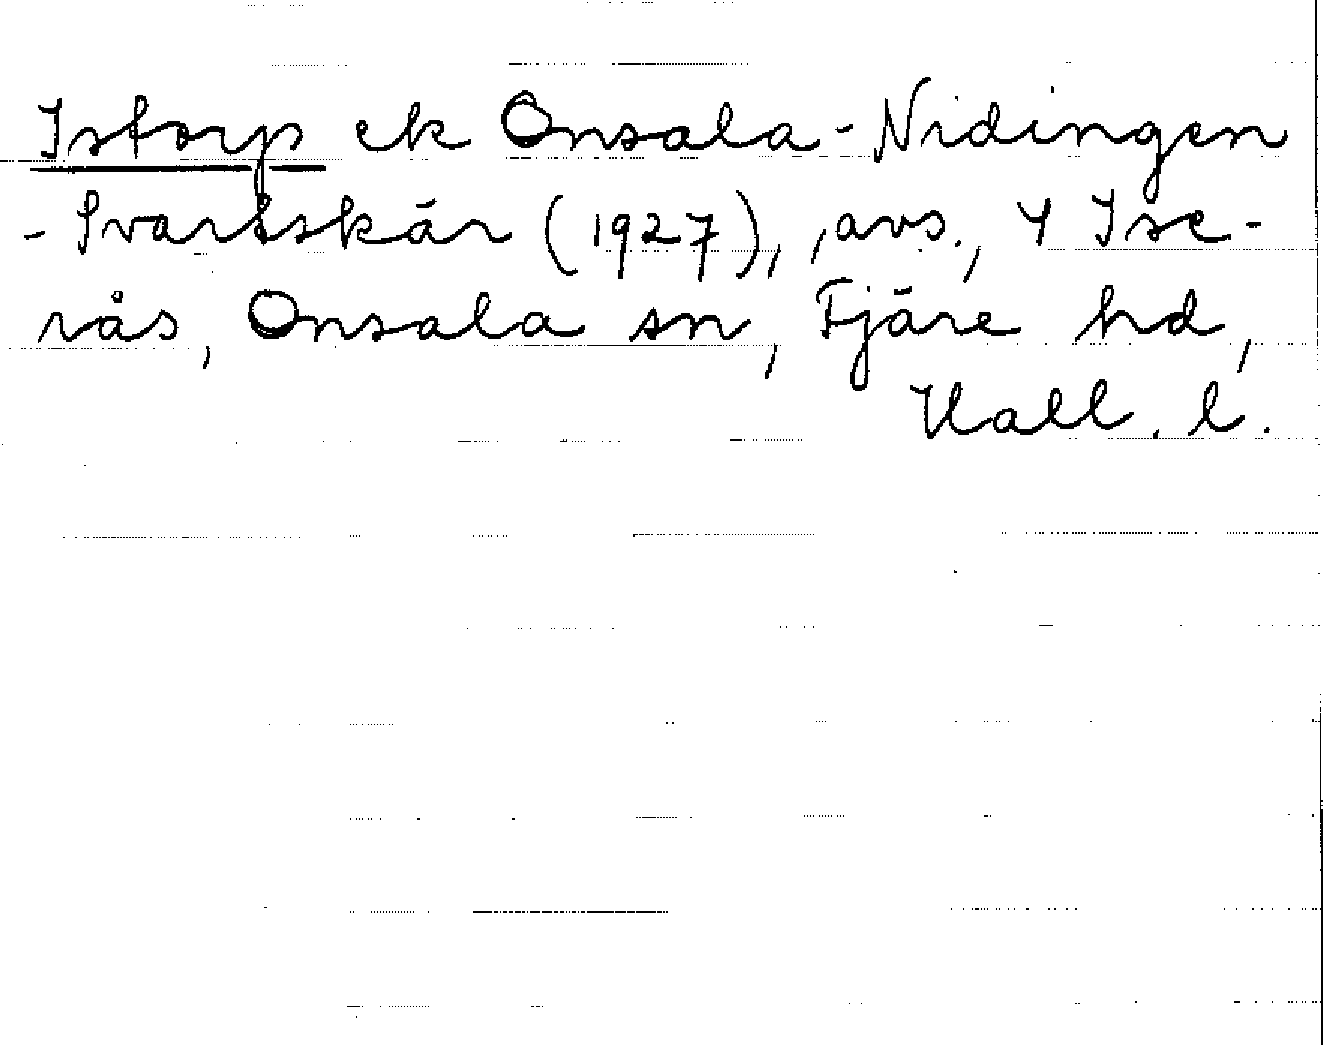 Istorp ek Onsala-Nidingen
-Svartskär (1927), avs., Y Ise-
rås, Onsala sn, Fjäre hd,
Hall. l.